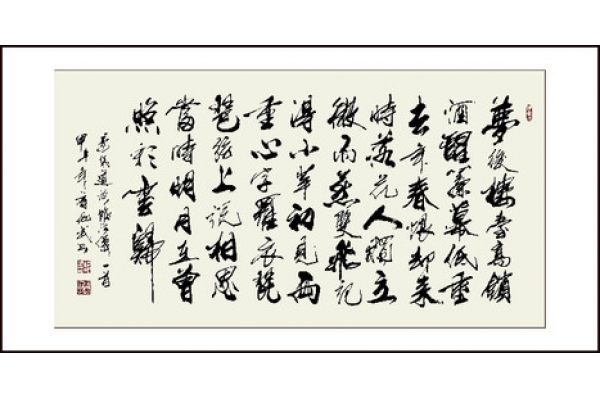 夢後樓臺高鎖
酒醒簾幕低垂
去年春恨却来
時落花人獨立
微雨燕雙飛記
得小苹初見兩
重心字羅衣琵
琶弦上説相思
當時明月在曾
照彩雲歸
一首
甲午年